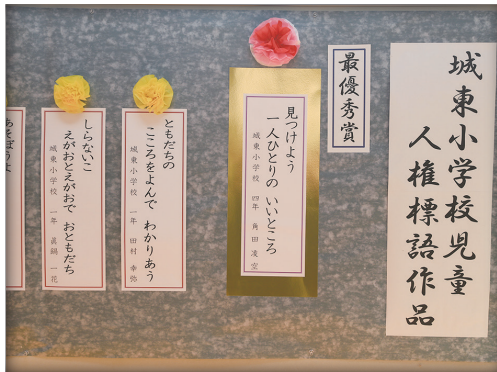 城東小学校児童
人権標語作品
最優秀賞
見つけよう
一人ひとりの いいところ
城東小学校 四年 角田 凌空
ともだちの
こころをよんで わかりあう
城東小学校 一年 田村 幸弥
しらないこ
えがおとえがおで おともだち
城東小学校 一年 眞鍋 一花
あそぼうよ